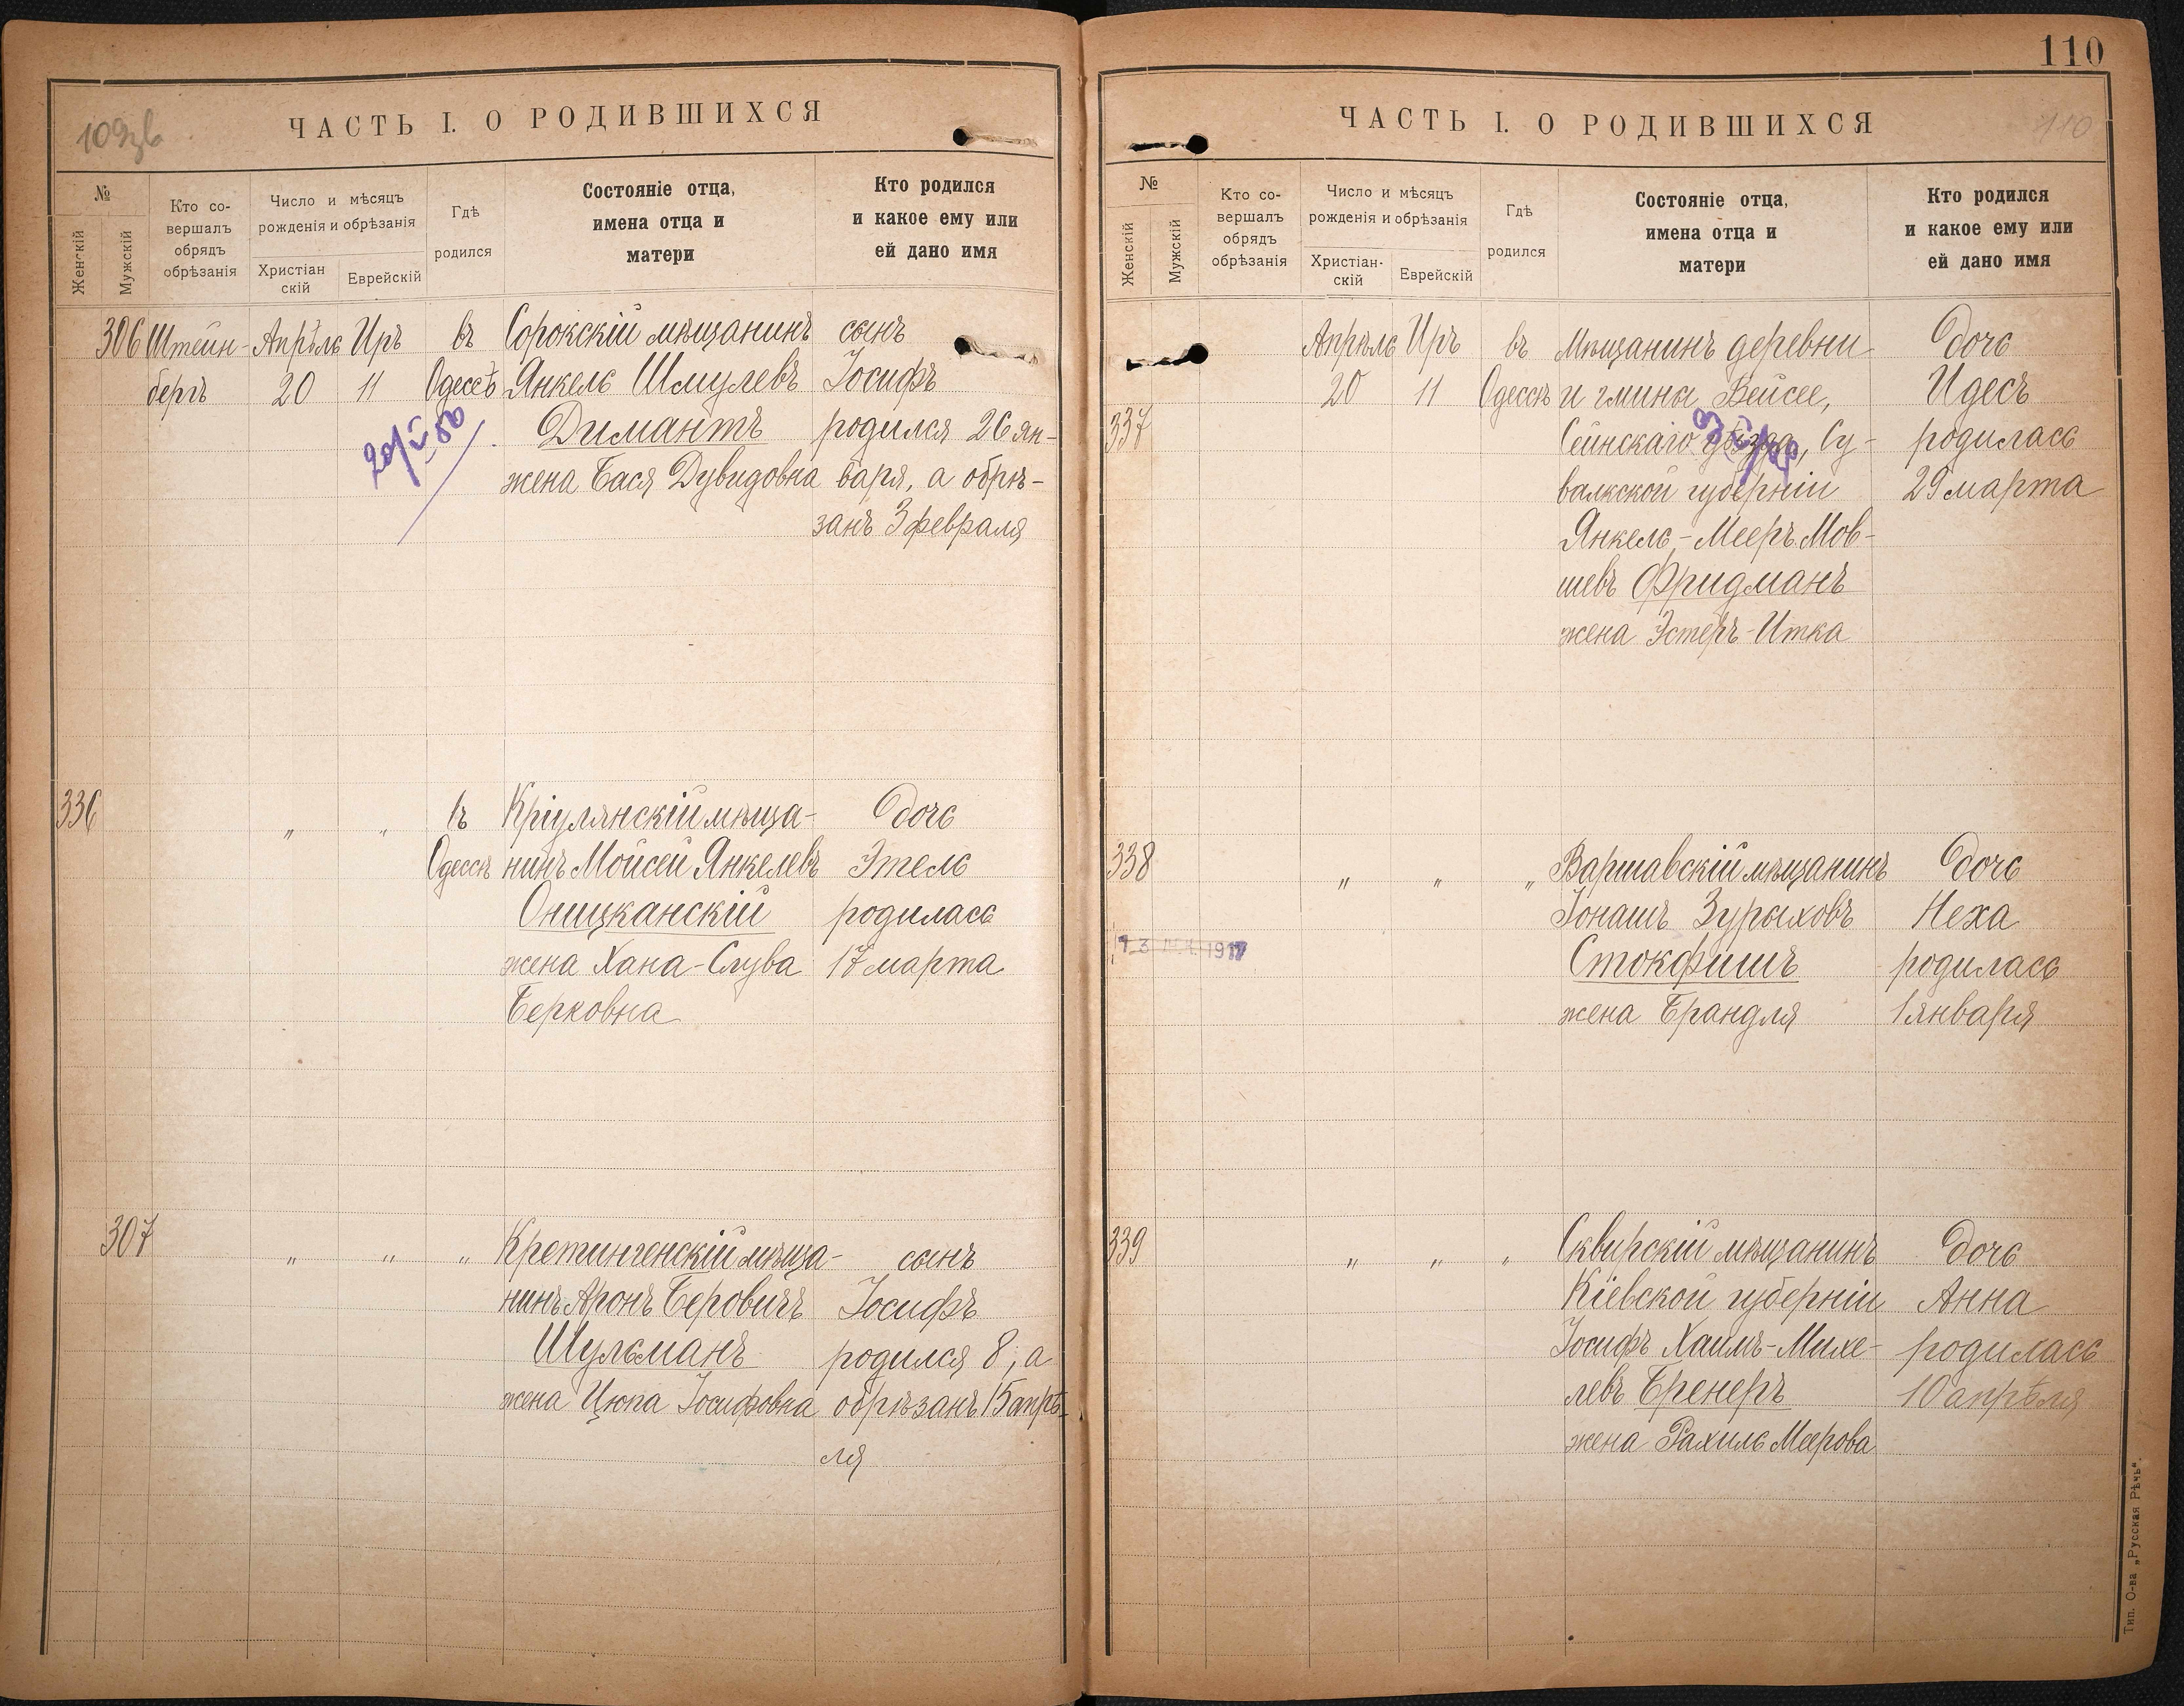 109зв
ЧАСТЬ I. О РОДИВШИХСЯ
№
Женскій
Мужскій
Кто со-
вершалъ
обрядъ
обрѣзанія
Число и мѣсяцъ
рожденія и обрѣзанія
Христіан
скій
Еврейскій
Гдѣ
родился
Состояніе отца,
имена отца и
матери
Кто родился
и какое ему или
ей дано имя
306 Штейн- Апрѣль Иръ въ Сорокскій мѣщанинъ сынъ
бергъ 20 11 Одессѣ Янкель Шмулевъ Іосифъ
Димантъ родился 26 ян-
жена Бася Дувидовна варя, а обрѣ-
занъ 3 февраля
336 „ „ въ Кріулянскій мѣща- Дочь
Одессѣ нинъ Мойсей Янкелевъ Этель
Оницканскій родилась
жена Хана-Слува 17 марта
Берковна
307 „ „ „ Кретингенскій мѣща- сынъ
нинъ Аронъ Беровичъ Іосифъ
Шульманъ родился 8, а
жена Цюпа Іосифовна обрѣзанъ 15 апрѣ-
ля
110
ЧАСТЬ I. О РОДИВШИХСЯ
110
№
Женскій
Мужскій
Кто со-
вершалъ
обрядъ
обрѣзанія
Число и мѣсяцъ
рожденія и обрѣзанія
Христіан-
скій
Еврейскій
Гдѣ
родился
Состояніе отца,
имена отца и
матери
Кто родился
и какое ему или
ей дано имя
Апрѣль Иръ въ Мѣщанинъ деревни Дочь
20 11 Одессѣ и гмины Вейсее, Идесъ
337 Сейнскаго уѣзда, Су- родилась
валкской губерніи 29 марта
Янкель-Мееръ Мов-
шевъ Фридманъ
жена Эстеръ-Итка
338 „ „ „ Варшавскій мѣщанинъ Дочь
Іонашъ Зурыховъ Неха
Стокфишъ родилась
жена Брандля 1 января
339 „ „ „ Сквирскій мѣщанинъ Дочь
Кіевской губерніи Анна
Іосифъ Хаимъ-Михе- родилась
левъ Бренеръ 10 апрѣля
жена Рахиль Меерова
Тип. О-ва „Русская Рѣчь“.